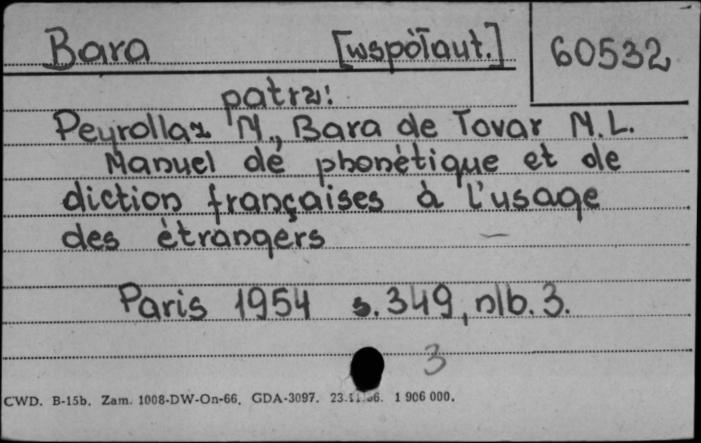 Bara [wspòłaut.] 60532
patrz:
Peyrollaz M., Bara de Tovar M.L.
Manuel de phonètique et de
diction françaises à l'usage
des ètrangers
Paris 1954 s. 349, nlb. 3.
3
CWD. B-15b. Zam. 1008-DW-On-66. GDA-3097. 1 906 000.